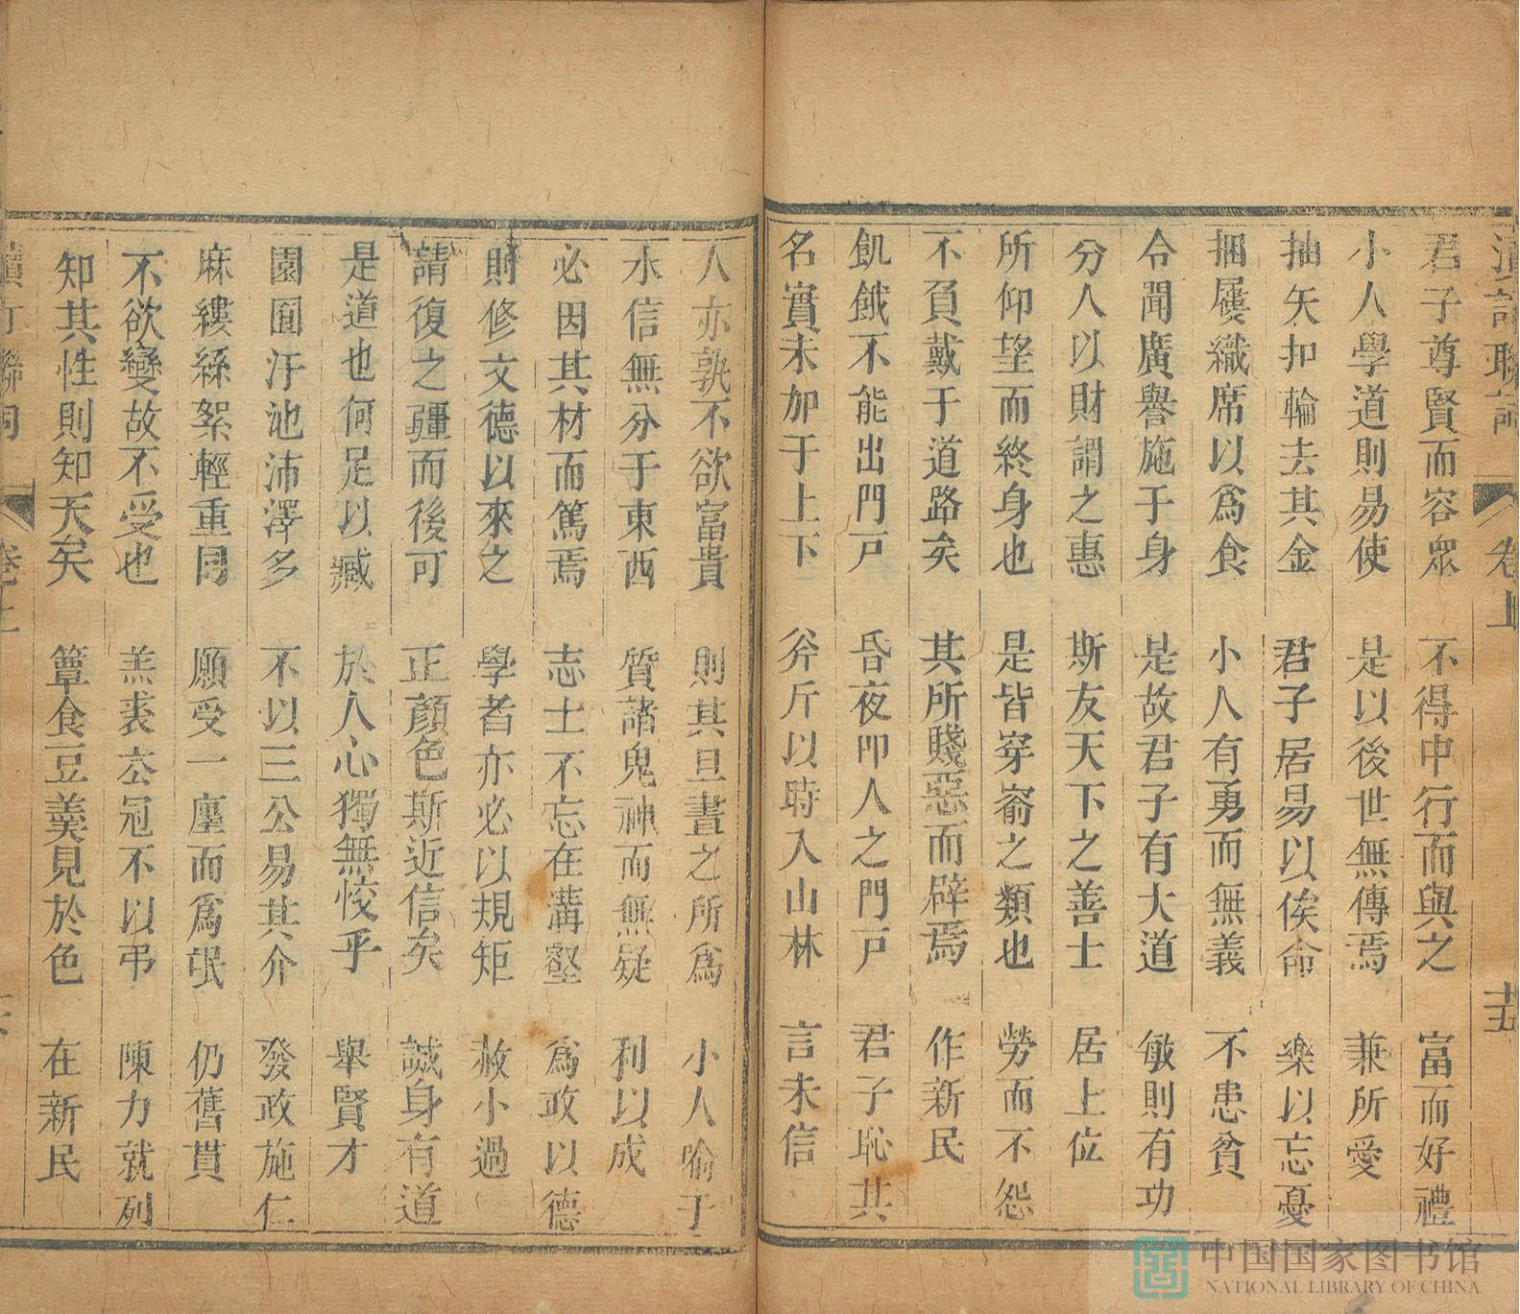 君子尊賢而容眾 不得中行而與之 富而好禮
小人學道則易使 是以後世無傳焉 兼所愛
抽矢扣輪去其金 君子居易以俟命 樂以忘憂
捆屨織席以爲食 小人有勇而無義 不患貧
令聞廣譽施于身 是故君子有大道 敏則有功
分人以財謂之惠 斯友天下之善士 居上位
所仰望而終身也 是皆穿窬之類也 勞而不怨
不負戴于道路矣 其所賤惡而辟焉 作新民
飢餓不能出門戸 昏夜叩人之門戸 君子恥其
名實未加于上下 斧斤以時入山林 言未信
人亦孰不欲富貴 則其旦晝之所爲 小人喻于
水信無分于東西 質諸鬼神而無疑 利以成
必因其材而篤焉 志士不忘在溝壑 爲政以德
則修文德以來之 學者亦必以規矩 赦小過
請復之疆而後可 正顏色斯近信矣 誠身有道
是道也何足以臧 於人心獨無恔乎 舉賢才
園囿汙池沛澤多 不以三公易其介 發政施仁
麻縷絲絮輕重同 願受一廛而爲氓 仍舊貫
不欲變故不受也 羔裘玄冠不以弔 陳力就列
知其性則知天矣 簞食豆羹見於色 在新民
卷上
十五
中国国家图书馆
NATIONAL LIBRARY OF CHINA